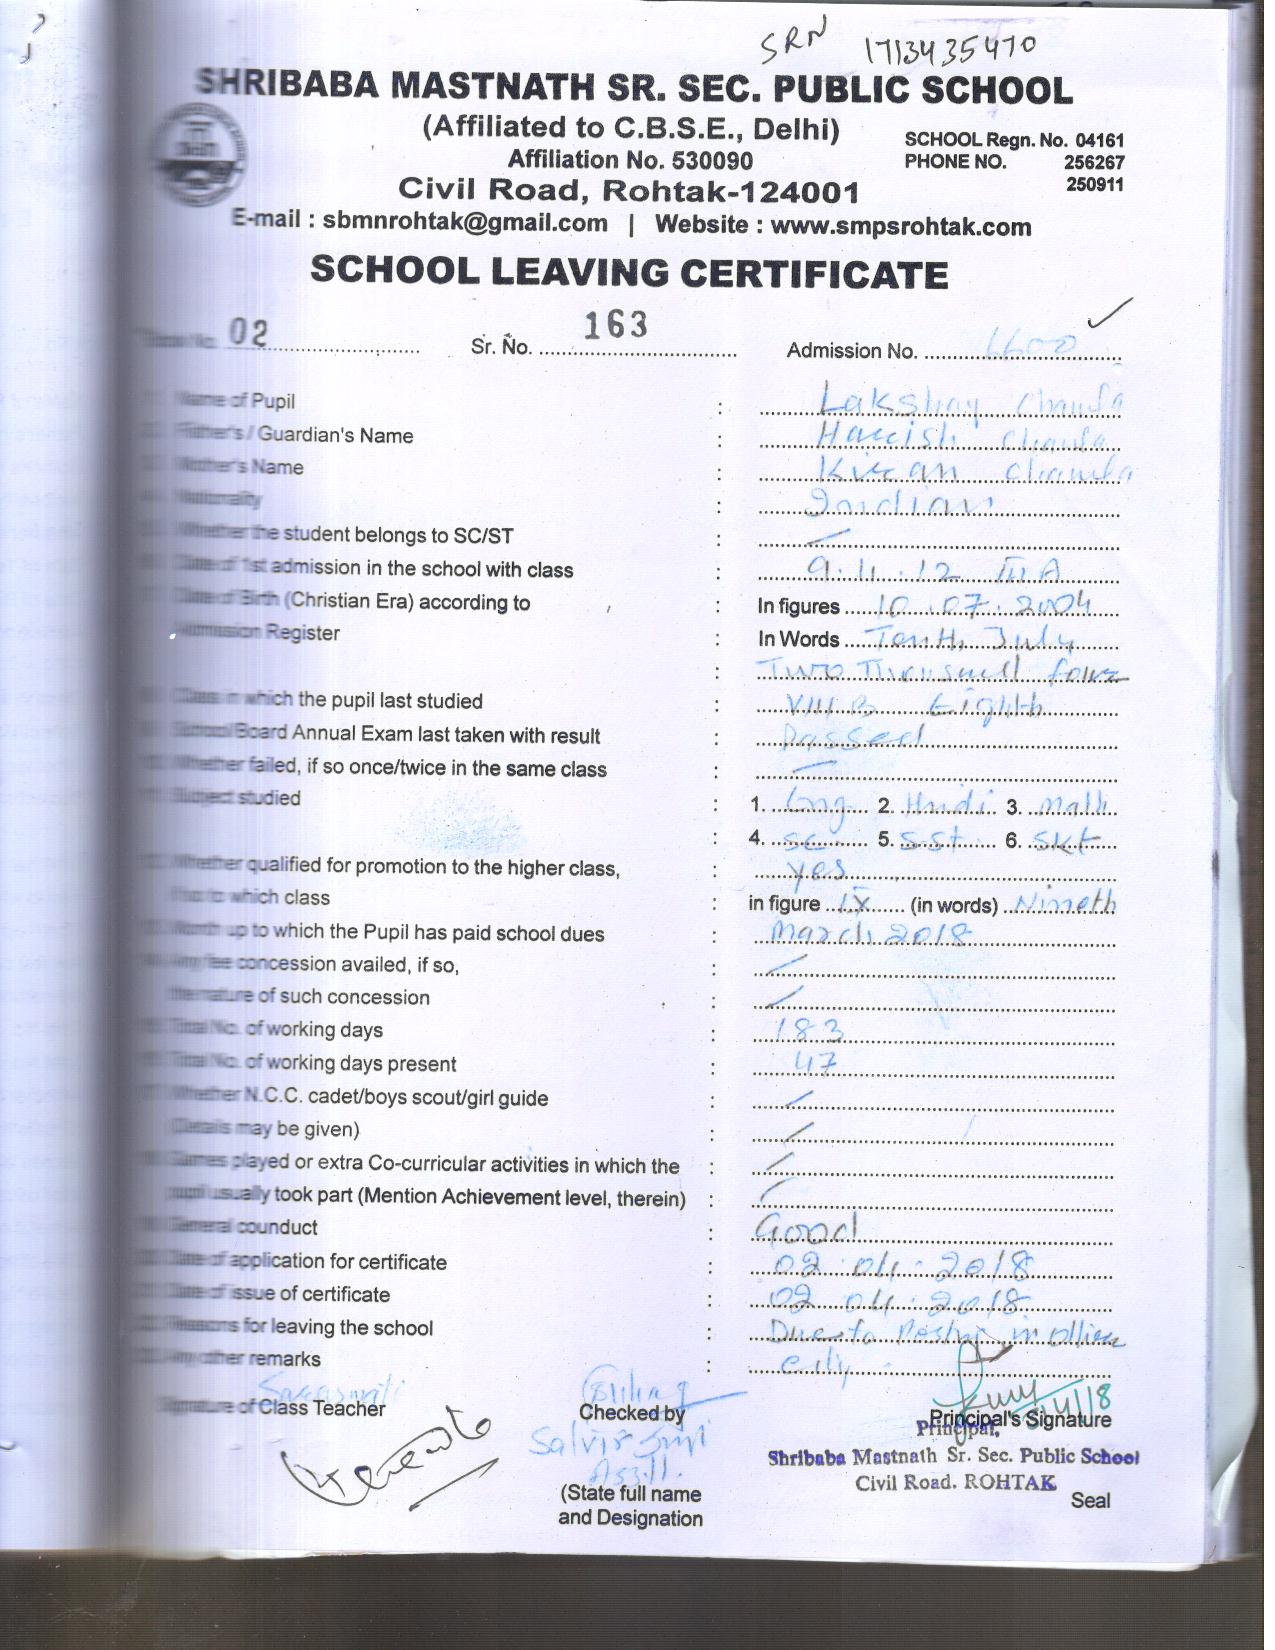 SRN 1713435470
SHRIBABA MASTNATH SR. SEC. PUBLIC SCHOOL
(Affiliated to C.B.S.E., Delhi)
SCHOOL Regn. No. 04161
Affiliation No. 530090
PHONE NO. 256267
250911
Civil Road, Rohtak-124001
E-mail : sbmnrohtak@gmail.com | Website : www.smpsrohtak.com
SCHOOL LEAVING CERTIFICATE
No. 02 Sr. No. 163 Admission No. 6600
Name of Pupil : Lakshay Chawla
Father's / Guardian's Name : Harish Chawla
Mother's Name : Kiran Chawla
Nationality : Indian
Whether the student belongs to SC/ST : —
Date of 1st admission in the school with class : 9.4.12 III A
Date of Birth (Christian Era) according to : In figures 10.07.2004
Admission Register : In Words Tenth, July
: Two Thousand four
Class in which the pupil last studied : VIII B Eighth
School/Board Annual Exam last taken with result : Passed
Whether failed, if so once/twice in the same class : —
Subject studied : 1. Eng 2. Hindi 3. Math
: 4. Sc 5. S.St 6. Skt
Whether qualified for promotion to the higher class, : yes
if so to which class : in figure IX (in words) Nineth
Month up to which the Pupil has paid school dues : March 2018
Any fee concession availed, if so, : —
the nature of such concession : —
Total No. of working days : 183
Total No. of working days present : 47
Whether N.C.C. cadet/boys scout/girl guide : —
(Details may be given) : —
Games played or extra Co-curricular activities in which the : —
pupil usually took part (Mention Achievement level, therein) : —
General counduct : Good
Date of application for certificate : 02.04.2018
Date of issue of certificate : 02.04.2018
Reasons for leaving the school : Due to in other
Any other remarks : City
Saraswati
Signature of Class Teacher Checked by Principal's Signature
Principal,
Shribaba Mastnath Sr. Sec. Public School
Civil Road, ROHTAK
(State full name Seal
and Designation